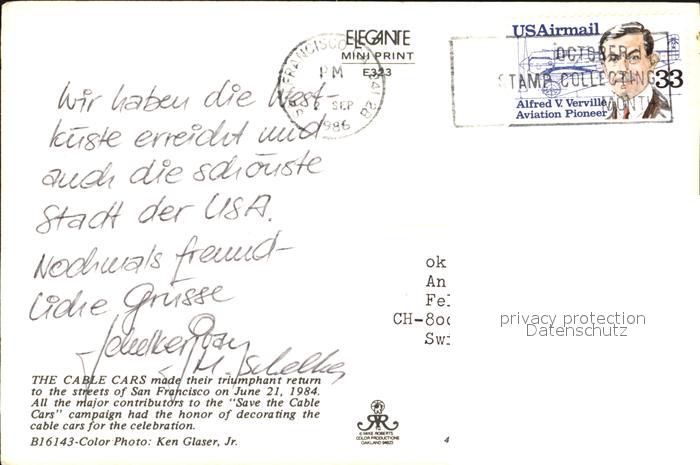 ELEGANTE
MINI PRINT
E323
FRANCISCO
PM
SEP
1986
USAirmail
OCTOBER
STAMP COLLECTING
MONTH
33
Alfred V. Verville
Aviation Pioneer
Wir haben die West-
küste erreicht und
auch die schönste
Stadt der USA.
Nochmals freund-
liche Grüsse
ok
An
Fe
CH-800
Swi
privacy protection
Datenschutz
THE CABLE CARS made their triumphant return
to the streets of San Francisco on June 21, 1984.
All the major contributors to the "Save the Cable
Cars" campaign had the honor of decorating the
cable cars for the celebration.
B16143-Color Photo: Ken Glaser, Jr.
© MIKE ROBERTS
COLOR PRODUCTIONS
OAKLAND 94623
4